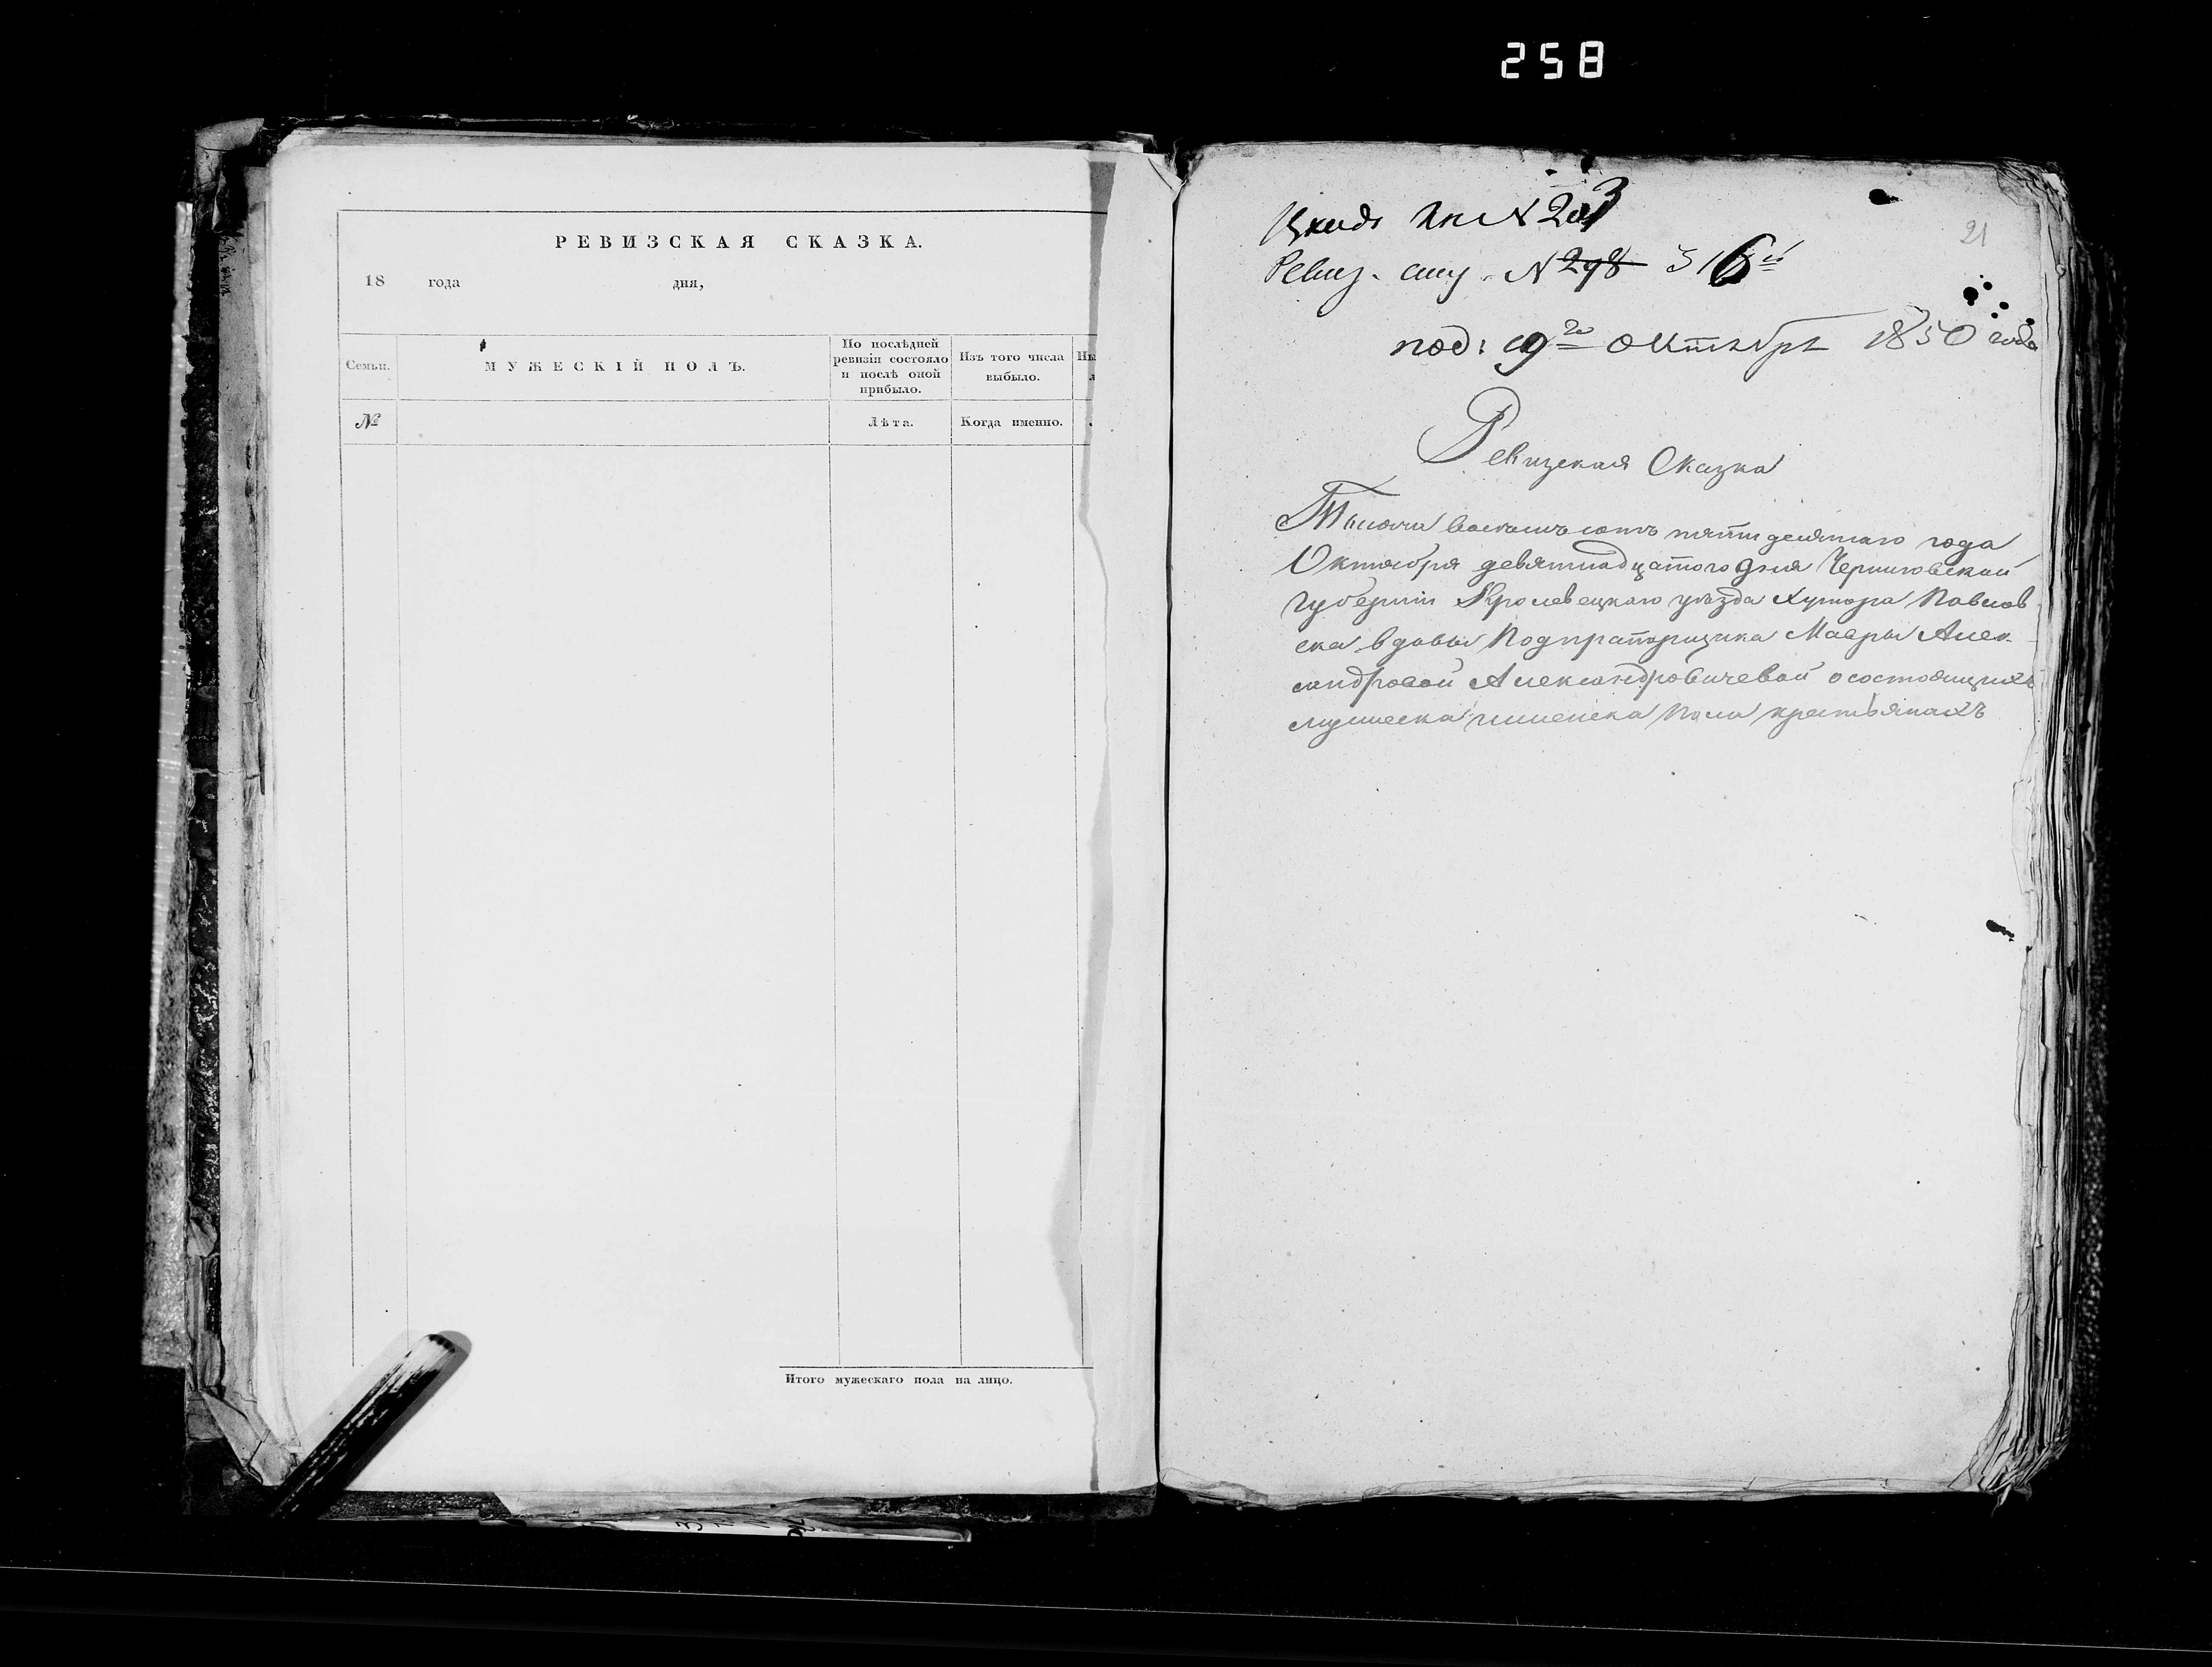 258
РЕВИЗСКАЯ СКАЗКА.
18 года дня,
Семьи.
МУЖЕСКІЙ ПОЛЪ.
По послѣдней
ревизіи состояло
и послѣ оной
прибыло.
Изъ того числа
выбыло.
№
Лѣта.
Когда именно.
Итого мужескаго пола на лицо.
21
N 203
Ревиз. N 298 316й
под: 19го Октября 1850 года
Ревизская Сказка
Тысяча восемь сотъ пятидесятаго года
Октября девятнадцатого дня Черниговской
губерніи Кролевецкаго уѣзда Хутора Павлов
ска вдовы Подпрапорщика Мавры Алек
сандровой Александровичевой о состоящихъ
мужеска и женска пола крестьянахъ